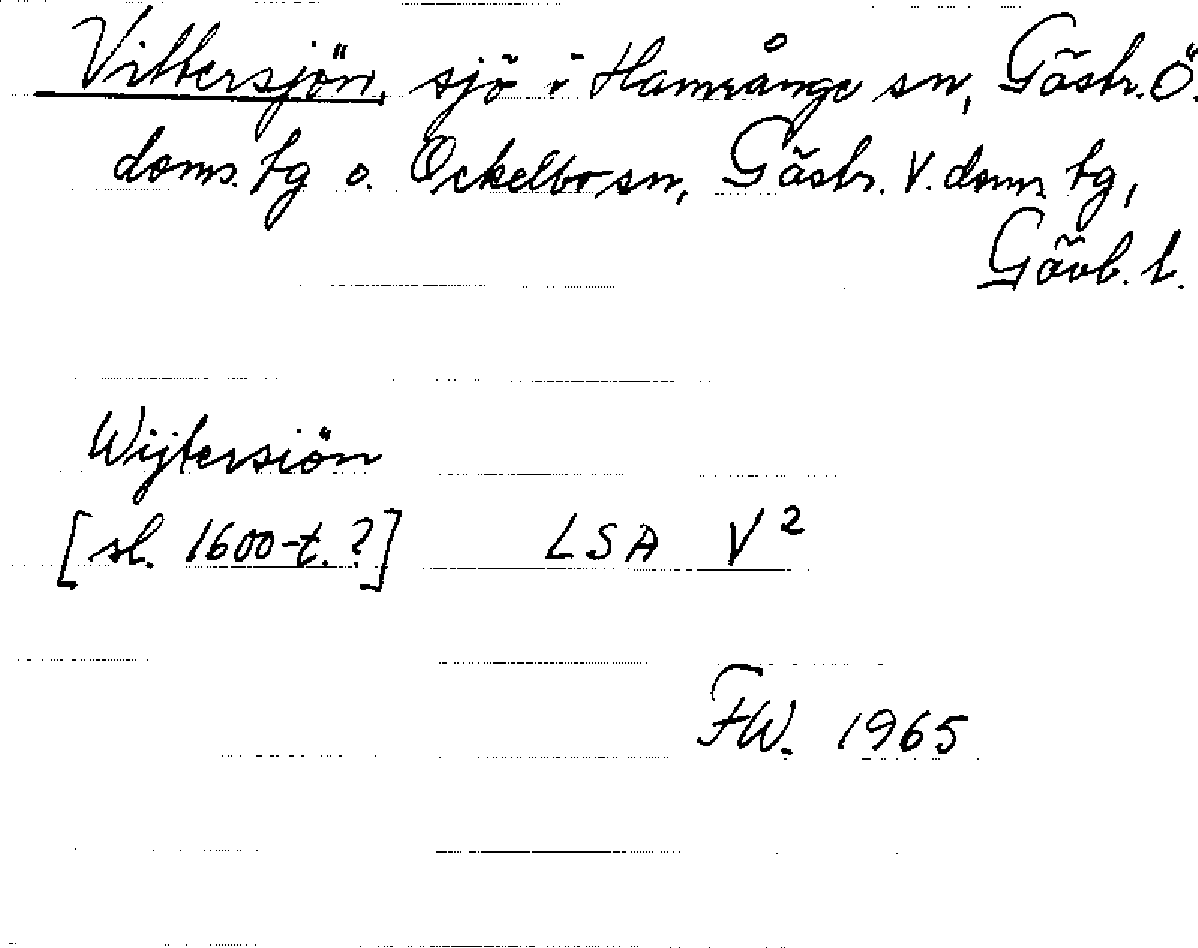 Vittersjön, sjö i Hamrånge sn, Gästr. Ö.
doms. tg o. Ockelbo sn, Gästr. V. doms. tg,
Gävb. l.
Wijtersiön
[sl. 1600-t.?] LSA V²
FW. 1965